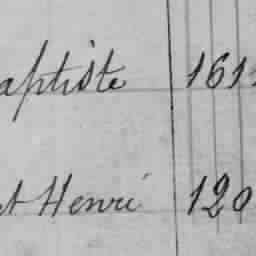 aptiste 161
et Henri 120